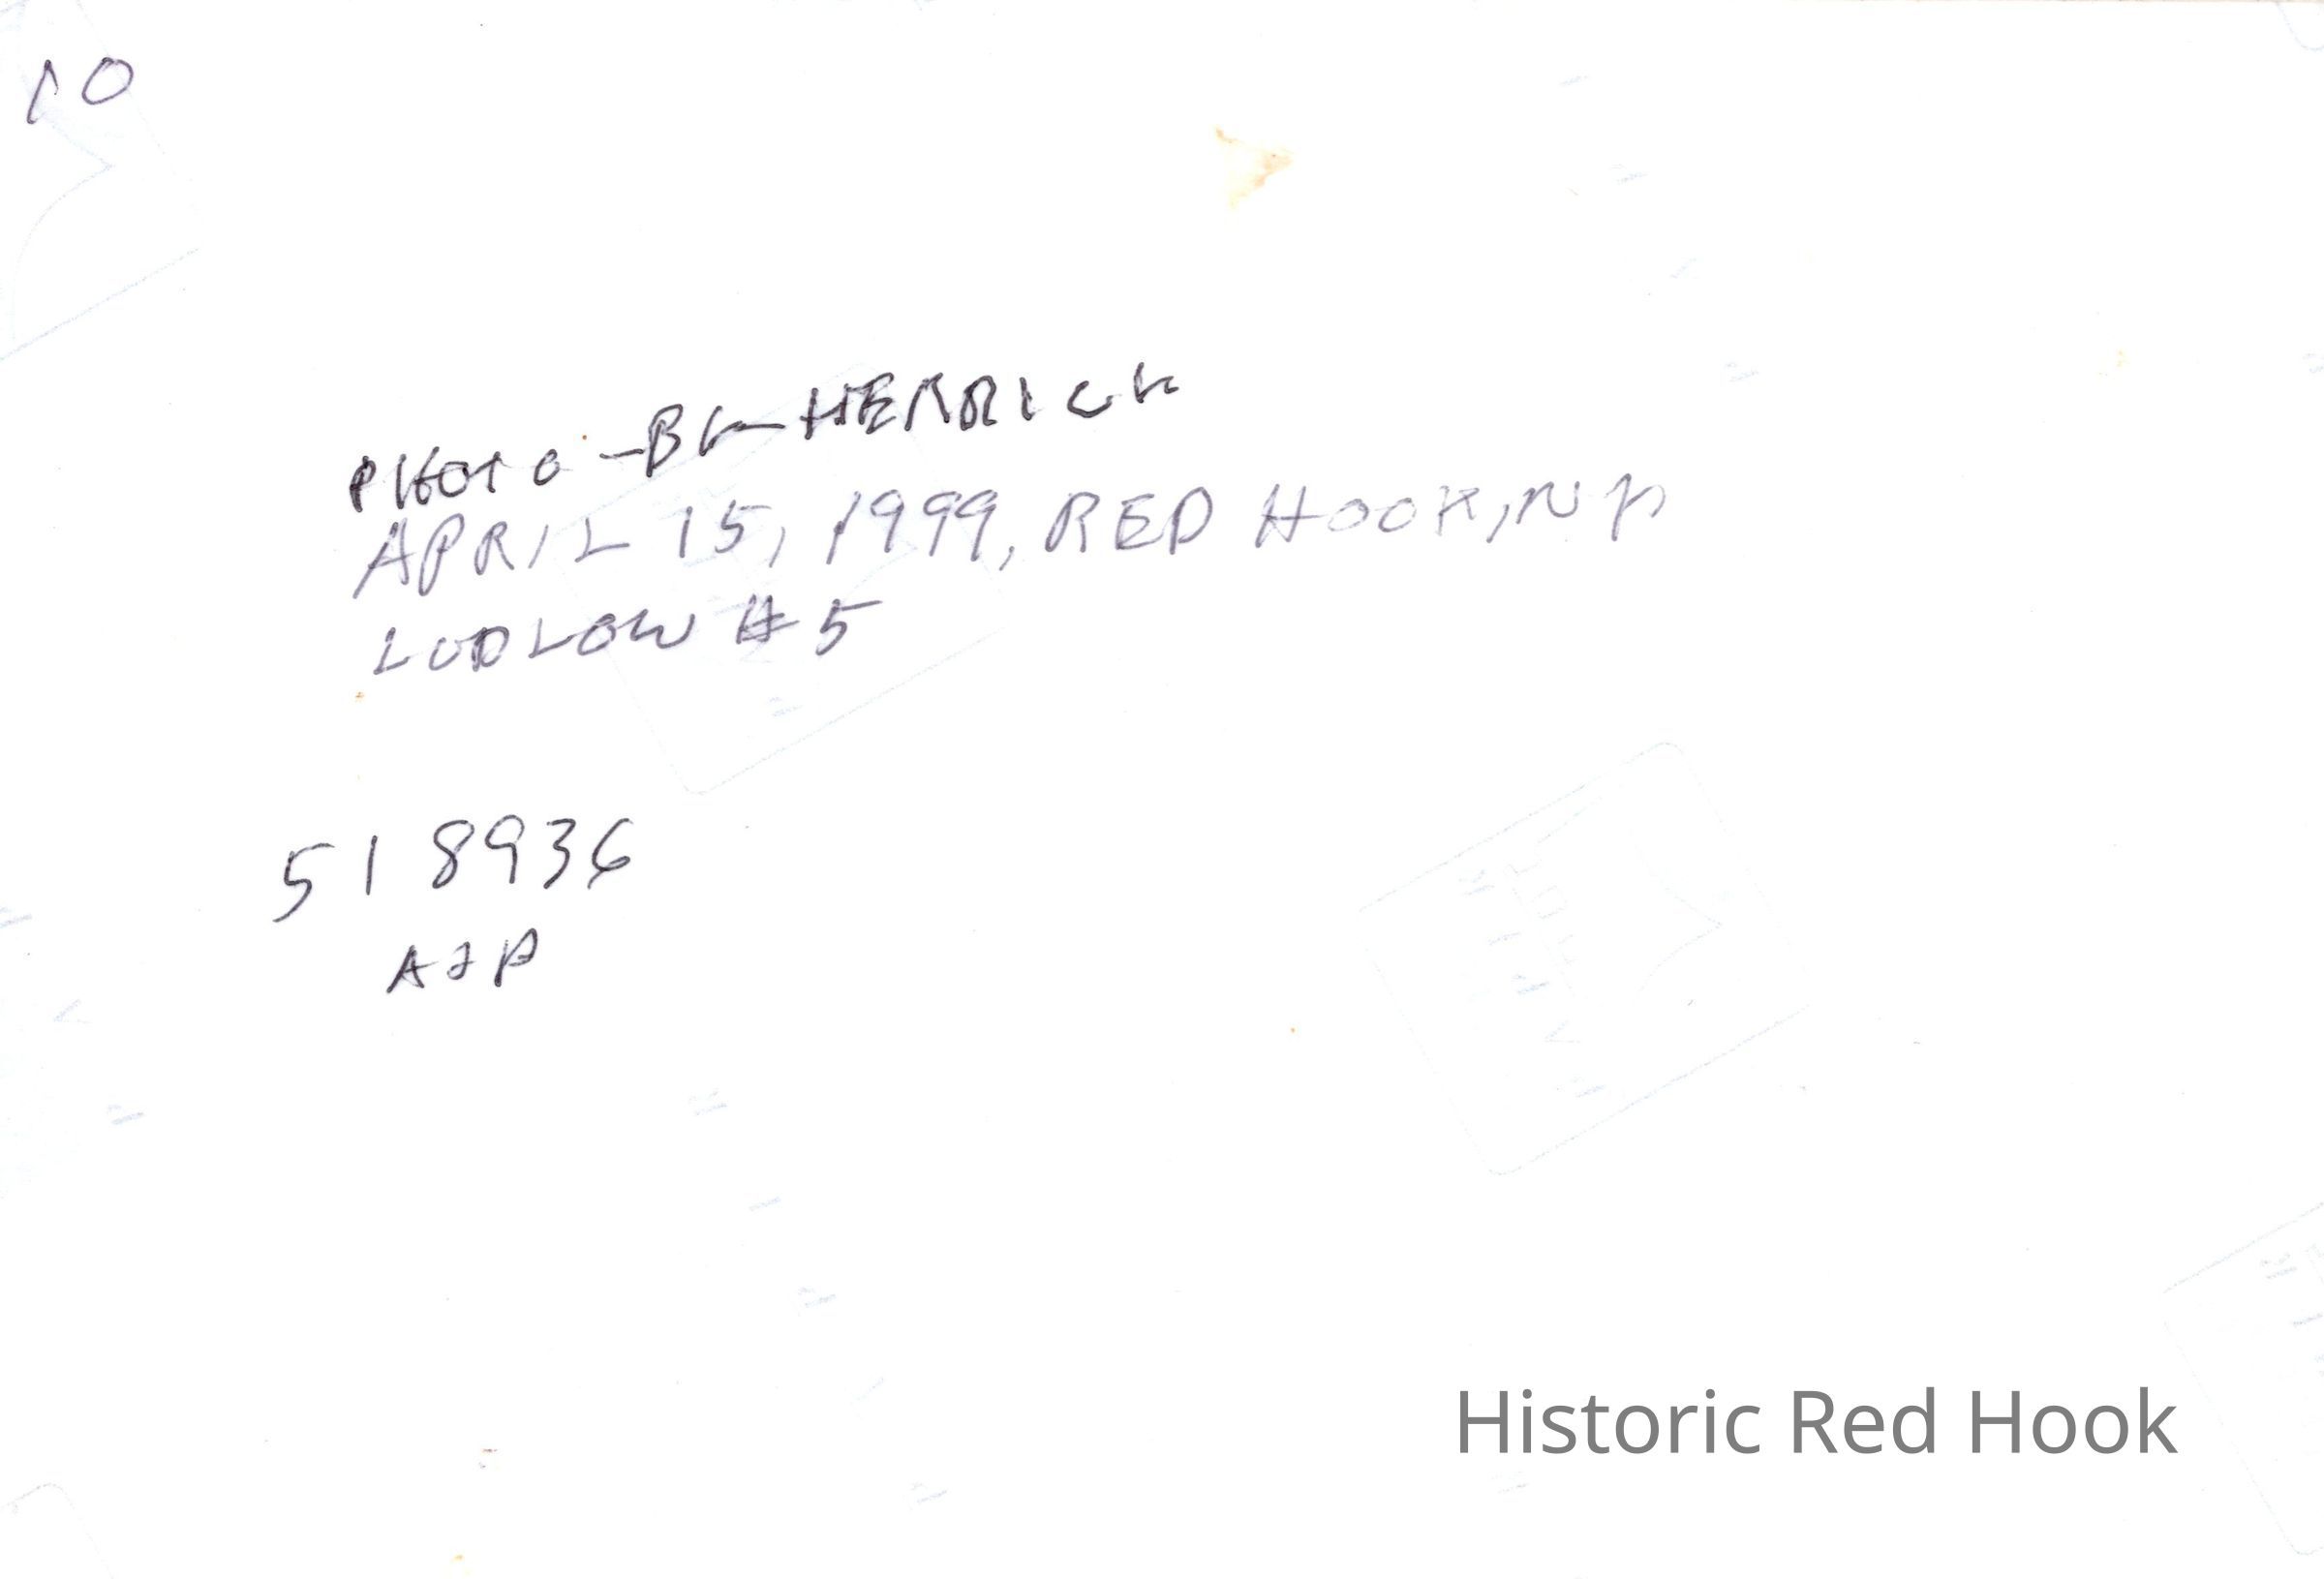 10
PHOTO - BY HERRICK
APRIL 15, 1999, RED HOOK, NY
LUDLOW #5
518936
Historic Red Hook